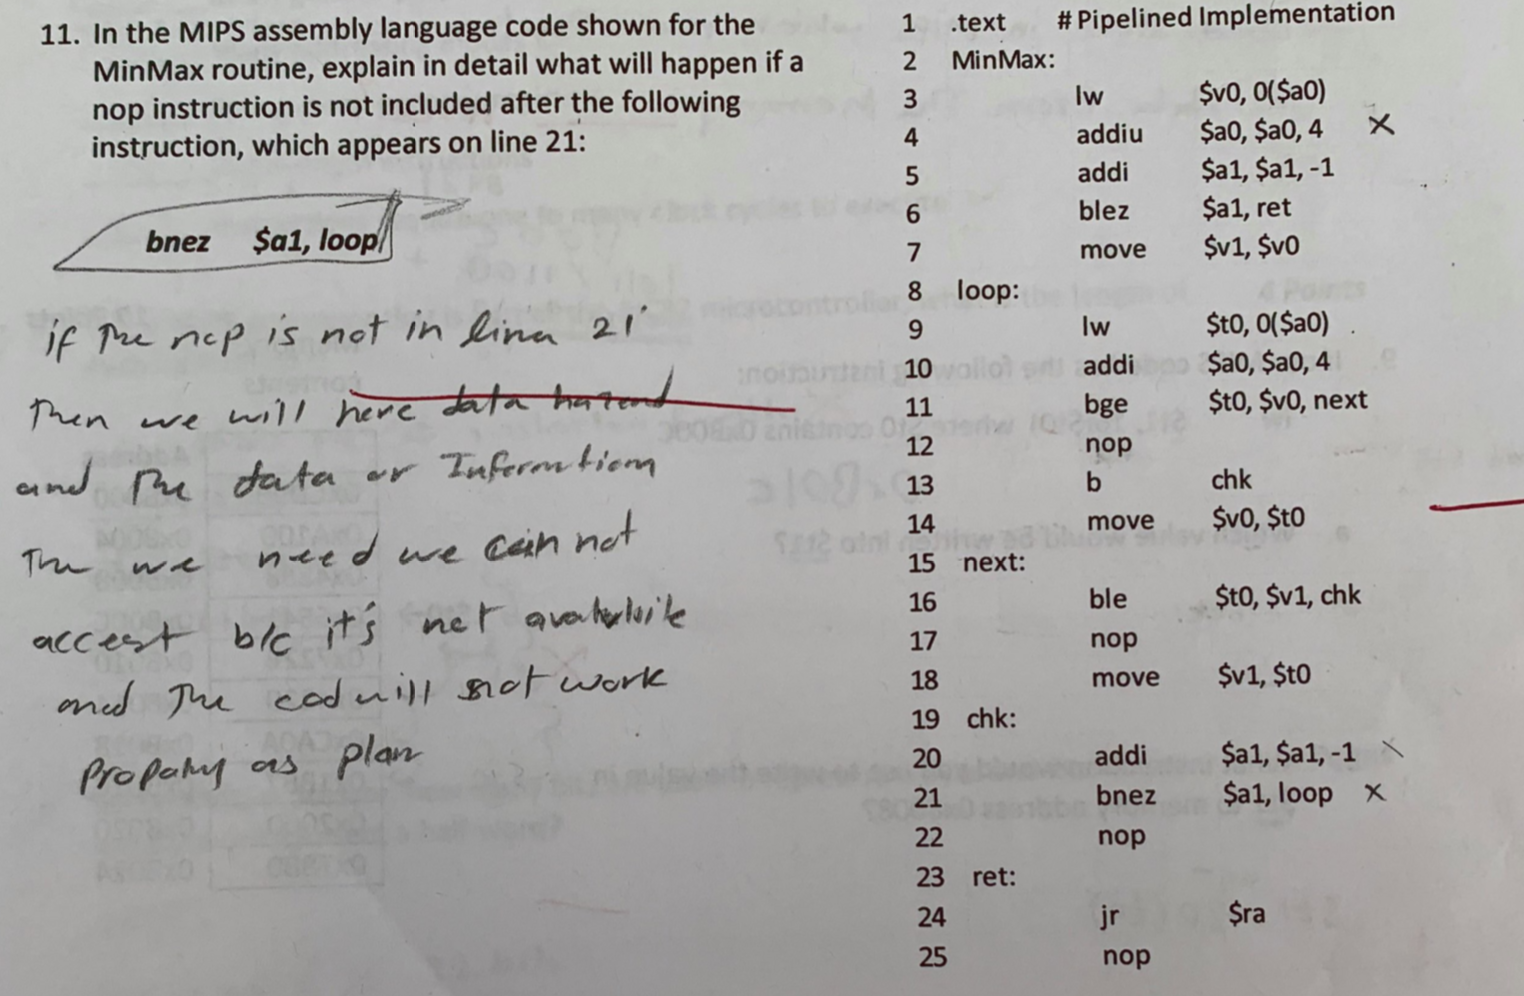 11. In the MIPS assembly language code shown for the
MinMax routine, explain in detail what will happen if a
nop instruction is not included after the following
instruction, which appears on line 21:
bnez $a1, loop
if The nop is not in line 21
Then we will have data hazard
and The data or Information
The we need we can not
accest b/c it's not
and The cod will not work
as plan
1 .text # Pipelined Implementation
2 MinMax:
3 lw $v0, 0($a0)
4 addiu $a0, $a0, 4 X
5 addi $a1, $a1, -1
6 blez $a1, ret
7 move $v1, $v0
8 loop:
9 lw $t0, 0($a0)
10 addi $a0, $a0, 4
11 bge $t0, $v0, next
12 nop
13 b chk
14 move $v0, $t0
15 next:
16 ble $t0, $v1, chk
17 nop
18 move $v1, $t0
19 chk:
20 addi $a1, $a1, -1
21 bnez $a1, loop X
22 nop
23 ret:
24 jr $ra
25 nop